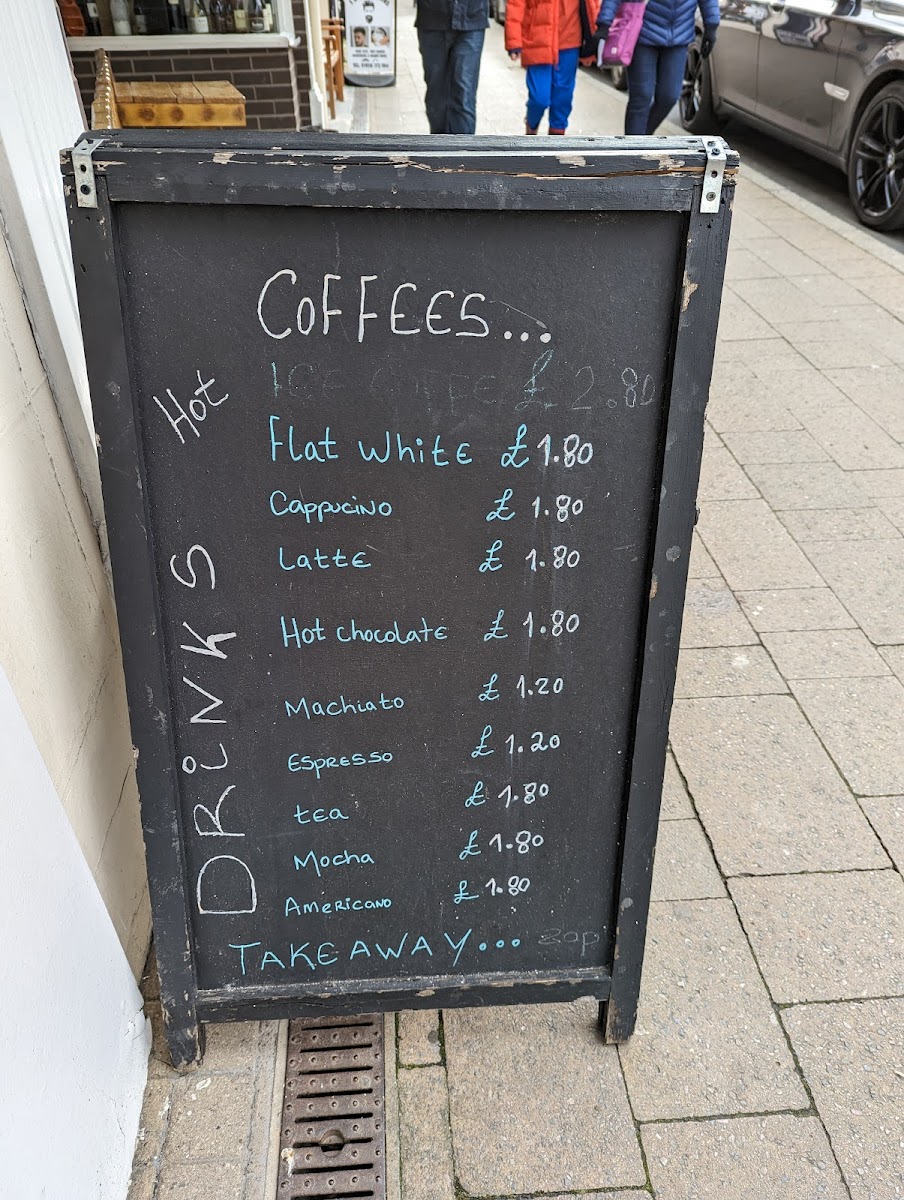 COFFEES...
ICE COFFE £ 2.80
Hot DRiNKS
Flat White £ 1.80
Cappucino £ 1.80
Latte £ 1.80
Hot chocolate £ 1.80
Machiato £ 1.20
Espresso £ 1.20
tea £ 1.80
Mocha £ 1.80
Americano £ 1.80
TAKEAWAY...